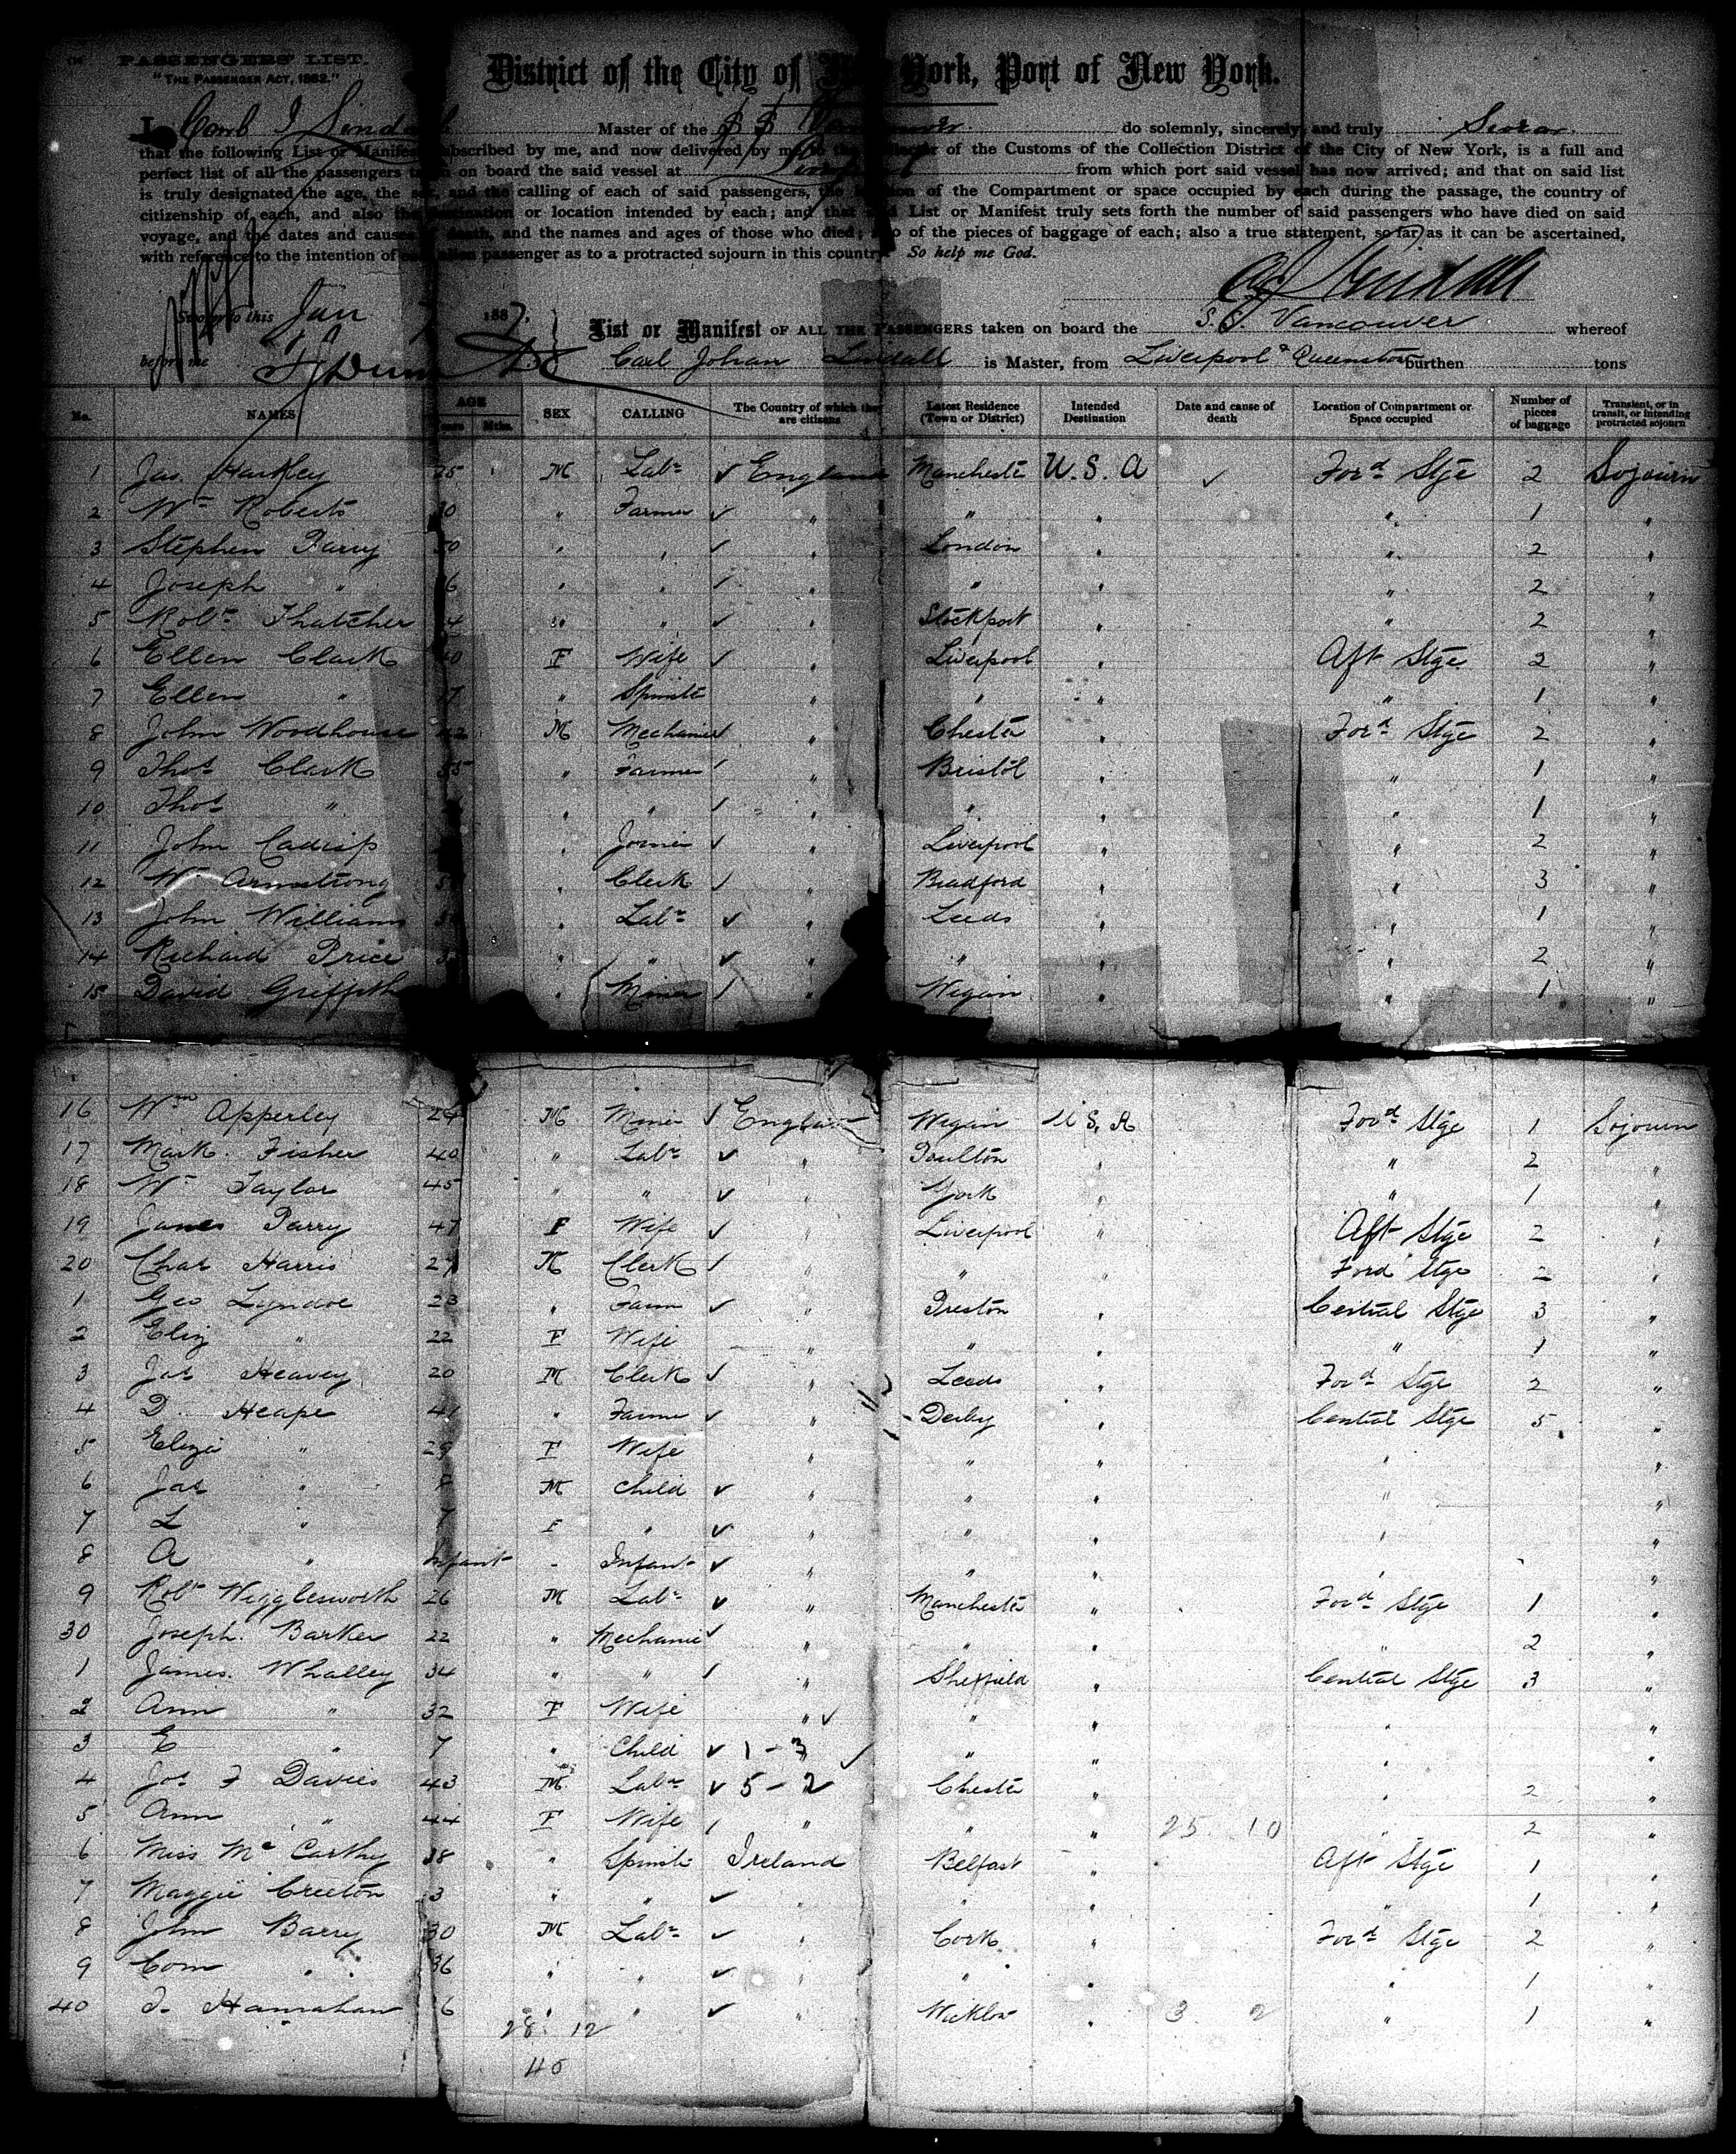 PASSENGERS' LIST.
"THE PASSENGER ACT, 1882."
District of the City of New York, Port of New York.
I, Carl J Lindall Master of the S S Vancouver do solemnly, sincerely and truly Swear
that the following List or Manifest subscribed by me, and now delivered by me to the Collector of the Customs of the Collection District of the City of New York, is a full and
perfect list of all the passengers taken on board the said vessel at Liverpool from which port said vessel has now arrived; and that on said list
is truly designated the age, the sex, and the calling of each of said passengers, the location of the Compartment or space occupied by each during the passage, the country of
citizenship of each, and also the destination or location intended by each; and that said List or Manifest truly sets forth the number of said passengers who have died on said
voyage, and the dates and causes of death, and the names and ages of those who died; also of the pieces of baggage of each; also a true statement, so far as it can be ascertained,
with reference to the intention of each alien passenger as to a protracted sojourn in this country. So help me God.
Sworn to this Jan 188
before me
List or Manifest OF ALL THE PASSENGERS taken on board the S.S. Vancouver whereof
Carl Johan Lindall is Master, from Liverpool & Queenstown burthen tons
No. NAMES AGE Years Mths. SEX CALLING The Country of which they are citizens Latest Residence (Town or District) Intended Destination Date and cause of death Location of Compartment or Space occupied Number of pieces of baggage Transient, or in transit, or intending protracted sojourn
1 Jas. Harkley M Labr England Manchester U.S.A Ford Stge 2 Sojourn
2 Wm Roberts " Farmer " " " " 1 "
3 Stephen Parry 50 " " " London " " 2 "
4 Joseph " " " " " " " 2 "
5 Robt Thatcher " " " Stockport " " 2 "
6 Ellen Clark F Wife " Liverpool " Aft Stge 2 "
7 Ellen " " Spinster " " " " 1 "
8 John Woodhouse M Mechanic " Chester " Ford Stge 2 "
9 Thos Clark " Farmer " Bristol " " 1 "
10 Thos " " " " " " " 1 "
11 John " Joiner " Liverpool " " 2 "
12 Wm Armstrong " Clerk " Bradford " " 3 "
13 John Williams " Labr " Leeds " " 1 "
14 Richard Price " " " " " " 2 "
15 David Griffith " Miner " Wigan " " 1 "
16 Wm Apperley 24 M Miner England Wigan U S. A Ford Stge 1 Sojourn
17 Mark Fisher 40 " Labr " Poulton " " 2 "
18 Wm Taylor 45 " " " York " " 1 "
19 James Parry 47 F Wife " Liverpool " Aft Stge 2 "
20 Chas Harris 27 M Clerk " " " Ford Stge 2 "
1 Geo Lyndoe 23 " Farm " Preston " Central Stge 3 "
2 Eliz " 22 F Wife " " " " 1 "
3 Jas Heavey 20 M Clerk " Leeds " Ford Stge 2 "
4 D. Heape 41 " Farmer " Derby " Central Stge 5 "
5 Eliza " 29 F Wife " " " " "
6 Jas " 8 M Child " " " " "
7 L " F " " " " " "
8 A " Infant - Infant " " " " "
9 Robt Wigglesworth 26 M Labr " Manchester " Ford Stge 1 "
30 Joseph. Barker 22 " Mechanic " " " " 2 "
1 James. Whalley 34 " " " Sheffield " Central Stge 3 "
2 Ann " 32 F Wife " " " " "
3 E " 7 " Child 1 - 3 " " " "
4 Jos F Davies 43 M Labr 5 - 2 Chester " " 2 "
5 Ann " 44 F Wife " " " 25 10 " 2 "
6 Miss McCarthy 38 " Spinster Ireland Belfast " Aft Stge 1 "
7 Maggie Creeton " " " " " " 1 "
8 John Barry 30 M Labr " Cork " Ford Stge 2 "
9 Corn " 36 " " " " " " 1 "
40 Hanrahan " " " Wicklow " 3 2 " 1 "
28 12
40